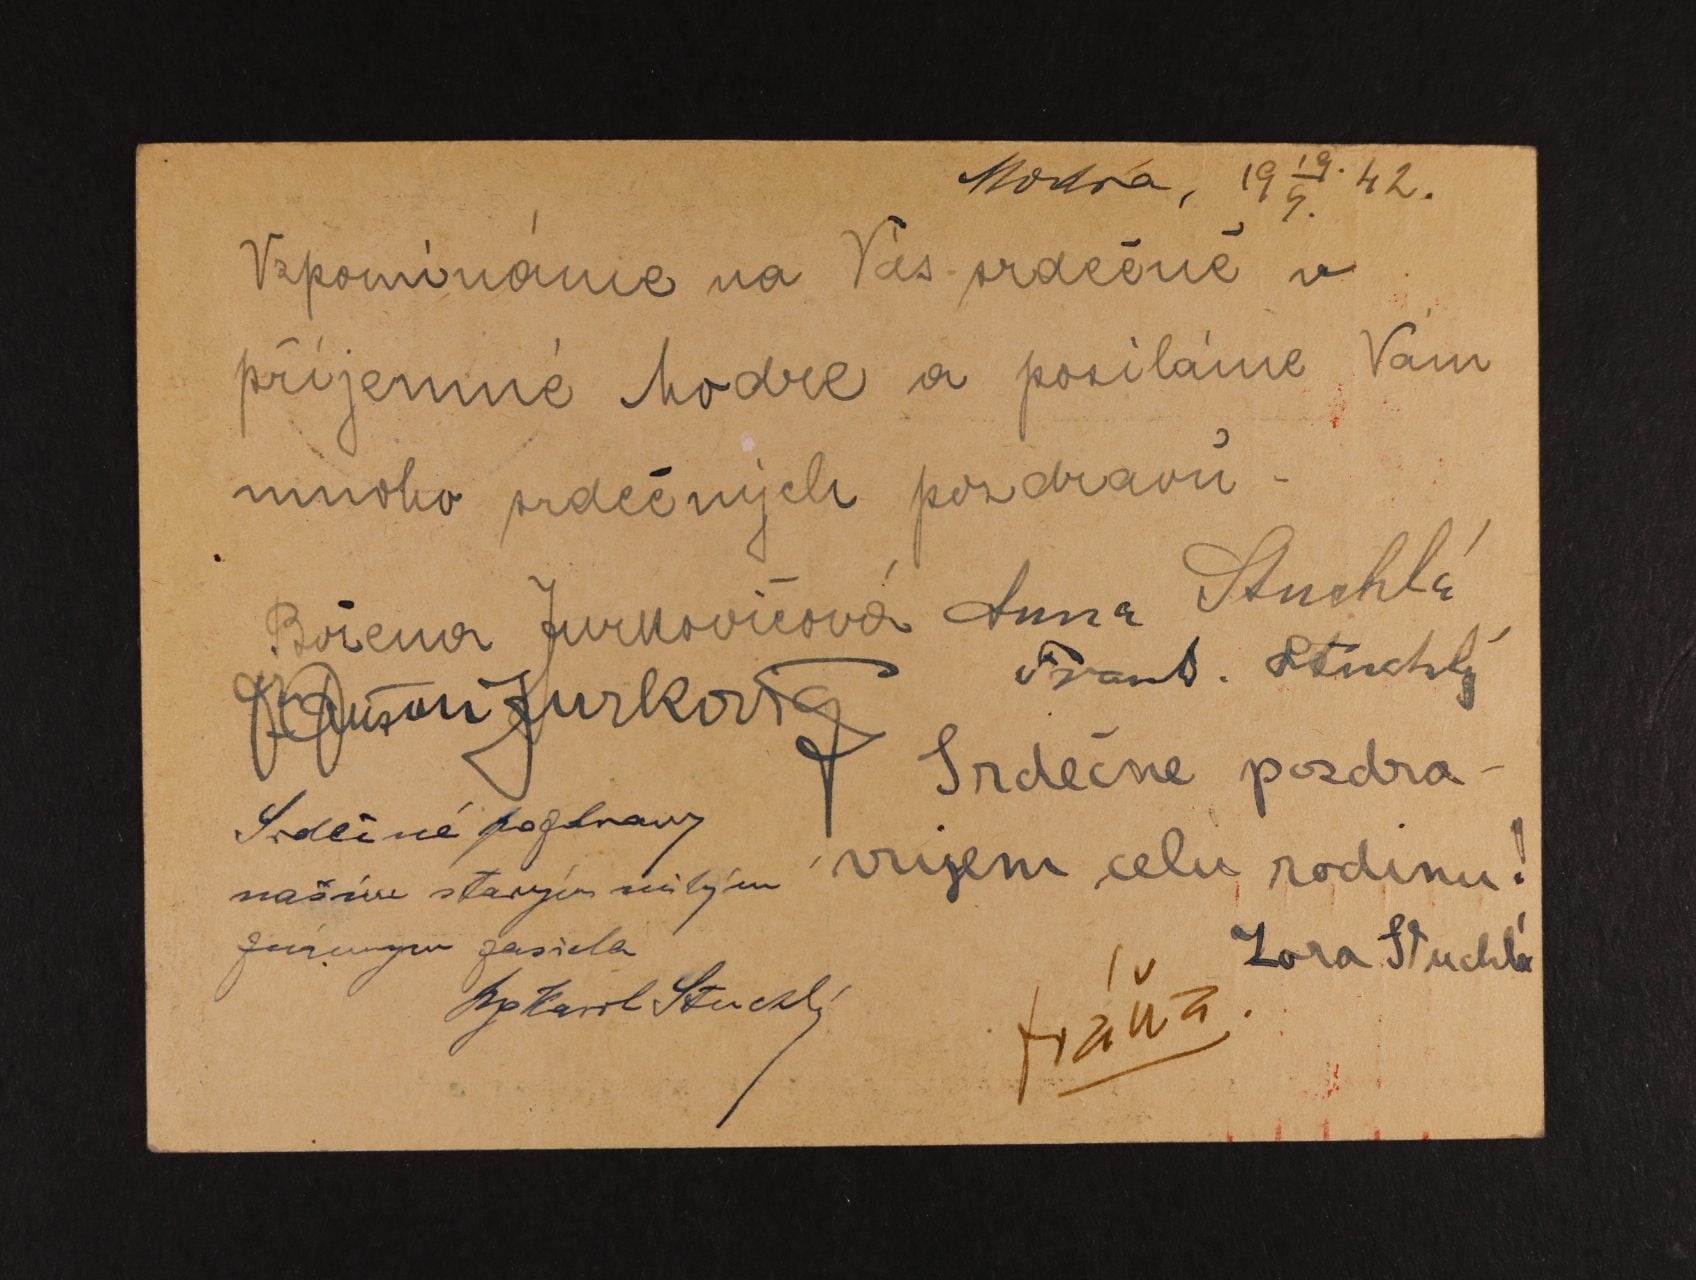 Modra, 19 19/9. 42.
Vzpomínáme na Vás srdečně v
příjemné Modre a posíláme Vám
mnoho srdečných pozdravů -
Božena Jurkovičová Anna Stuchlá
Frant. Stuchlý
Dušan Jurkovič
Srdečne pozdra-
vujem celú rodinu!
Zora Stuchlá
Srdečné pozdravy
našim starým milým
známym zasiela
Karol Stuchlý